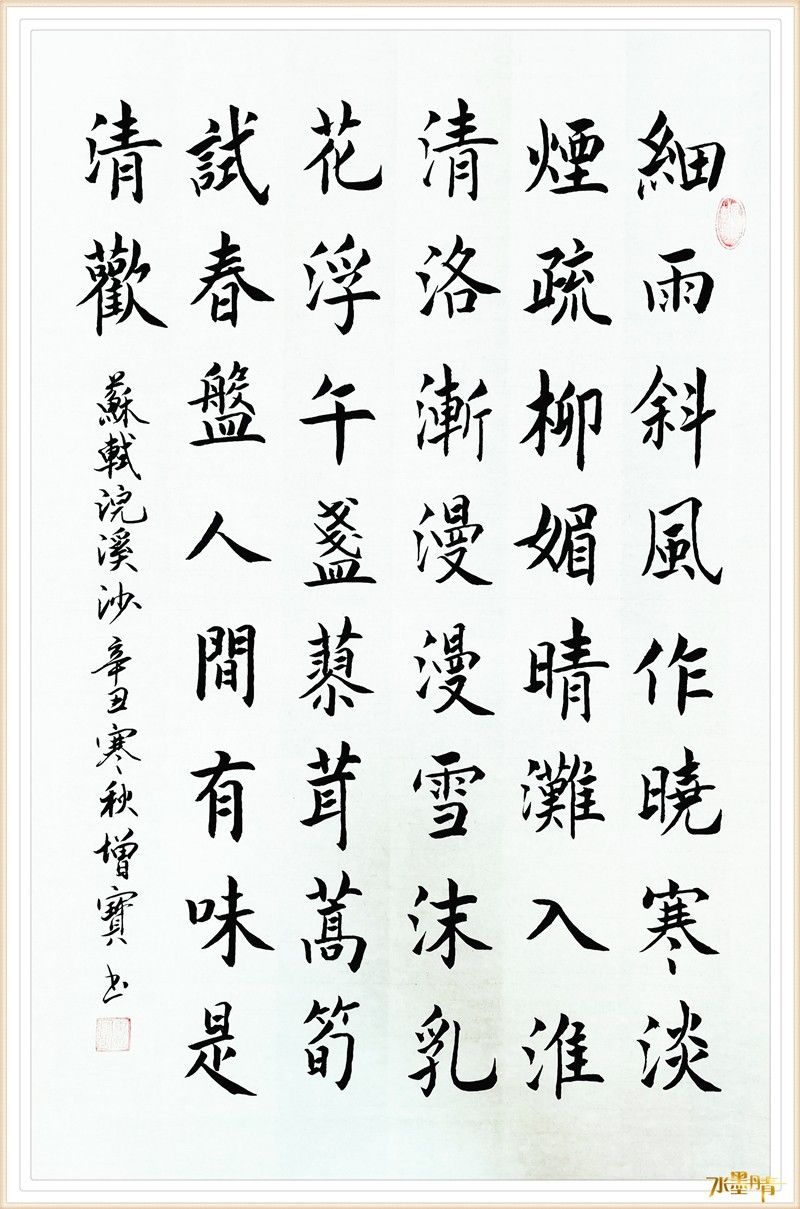 細雨斜風作曉寒淡
煙疏柳媚晴灘入淮
清洛漸漫漫雪沫乳
花浮午盞蓼茸蒿筍
試春盤人間有味是
清歡
蘇軾浣溪沙辛丑寒秋增寶书
水墨晴